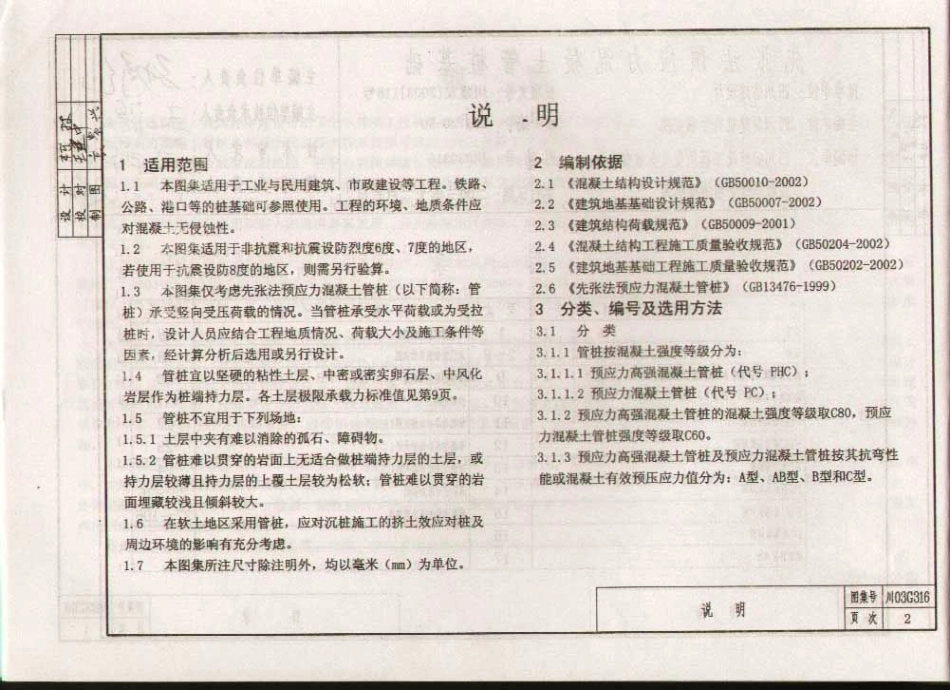 说 明
1 适用范围
1.1 本图集适用于工业与民用建筑、市政建设等工程。铁路、
公路、港口等的桩基础可参照使用。工程的环境、地质条件应
对混凝土无侵蚀性。
1.2 本图集适用于非抗震和抗震设防烈度6度、7度的地区，
若使用于抗震设防8度的地区，则需另行验算。
1.3 本图集仅考虑先张法预应力混凝土管桩（以下简称：管
桩）承受竖向受压荷载的情况。当管桩承受水平荷载或为受拉
桩时，设计人员应结合工程地质情况、荷载大小及施工条件等
因素，经计算分析后选用或另行设计。
1.4 管桩宜以坚硬的粘性土层、中密或密实卵石层、中风化
岩层作为桩端持力层。各土层极限承载力标准值见第9页。
1.5 管桩不宜用于下列场地：
1.5.1 土层中夹有难以消除的孤石、障碍物。
1.5.2 管桩难以贯穿的岩面上无适合做桩端持力层的土层，或
持力层较薄且持力层的上覆土层较为松软；管桩难以贯穿的岩
面埋藏较浅且倾斜较大。
1.6 在软土地区采用管桩，应对沉桩施工的挤土效应对桩及
周边环境的影响有充分考虑。
1.7 本图集所注尺寸除注明外，均以毫米（mm）为单位。
2 编制依据
2.1 《混凝土结构设计规范》（GB50010-2002）
2.2 《建筑地基基础设计规范》（GB50007-2002）
2.3 《建筑结构荷载规范》（GB50009-2001）
2.4 《混凝土结构工程施工质量验收规范》（GB50204-2002）
2.5 《建筑地基基础工程施工质量验收规范》（GB50202-2002）
2.6 《先张法预应力混凝土管桩》（GB13476-1999）
3 分类、编号及选用方法
3.1 分 类
3.1.1 管桩按混凝土强度等级分为：
3.1.1.1 预应力高强混凝土管桩（代号 PHC）；
3.1.1.2 预应力混凝土管桩（代号 PC）；
3.1.2 预应力高强混凝土管桩的混凝土强度等级取C80，预应
力混凝土管桩强度等级取C60。
3.1.3 预应力高强混凝土管桩及预应力混凝土管桩按其抗弯性
能或混凝土有效预压应力值分为：A型、AB型、B型和C型。
设 计
校 对
制 图
说 明
图集号 川03G316
页 次 2